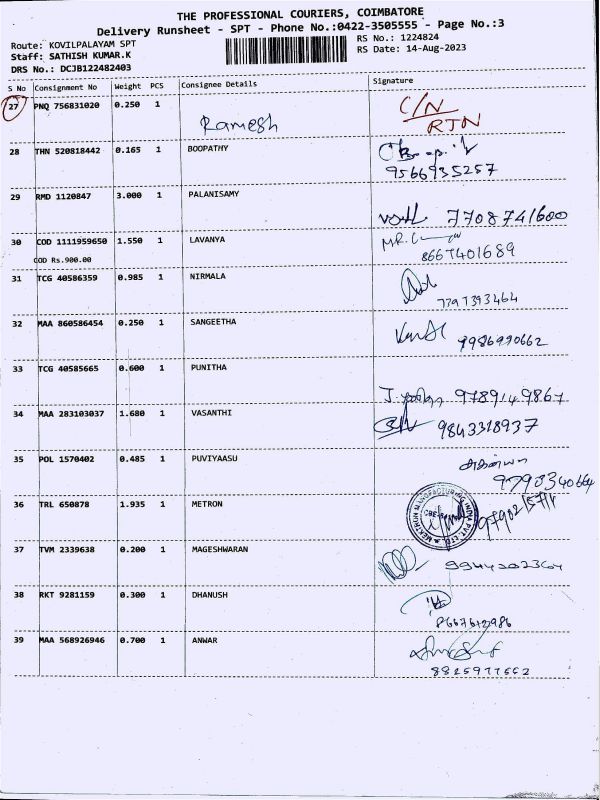 THE PROFESSIONAL COURIERS, COIMBATORE
Delivery Runsheet - SPT - Phone No.:0422-3505555 - Page No.:3
Route: KOVILPALAYAM SPT
RS No.: 1224824
Staff: SATHISH KUMAR.K
RS Date: 14-Aug-2023
DRS No.: DCJB122482403
S No Consignment No Weight PCS Consignee Details Signature
27 PNQ 756831020 0.250 1 Ramesh C/N
RTN
28 THN 520818442 0.165 1 BOOPATHY
9566935257
29 RMD 1120847 3.000 1 PALANISAMY
7708741600
30 COD 1111959650 1.550 1 LAVANYA
COD Rs.900.00
8667401689
31 TCG 40586359 0.985 1 NIRMALA
7797393464
32 MAA 860586454 0.250 1 SANGEETHA
9986990662
33 TCG 40585665 0.600 1 PUNITHA
9789149867
34 MAA 283103037 1.680 1 VASANTHI
9843318937
35 POL 1570402 0.485 1 PUVIYAASU
9790340664
36 TRL 650878 1.935 1 METRON
37 TVM 2339638 0.200 1 MAGESHWARAN
38 RKT 9281159 0.300 1 DHANUSH
39 MAA 568926946 0.700 1 ANWAR